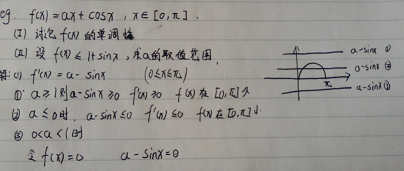 eg. f(x)=ax+cosx , x∈[0,π].
(Ⅰ) 讨论f(x)的单调性
(Ⅱ) 设f(x)≤1+sinx, 求a的取值范围.
解:(1) f'(x)=a-sinx (0≤x≤π)
① a≥1时 a-sinx≥0 f'(x)≥0 f(x)在[0,π]↑
② a≤0时, a-sinx≤0 f'(x)≤0 f(x)在[0,π]↓
③ 0<a<1时
令f'(x)=0 a-sinx=0
a-sinx ①
a-sinx ③
π
a-sinx ②